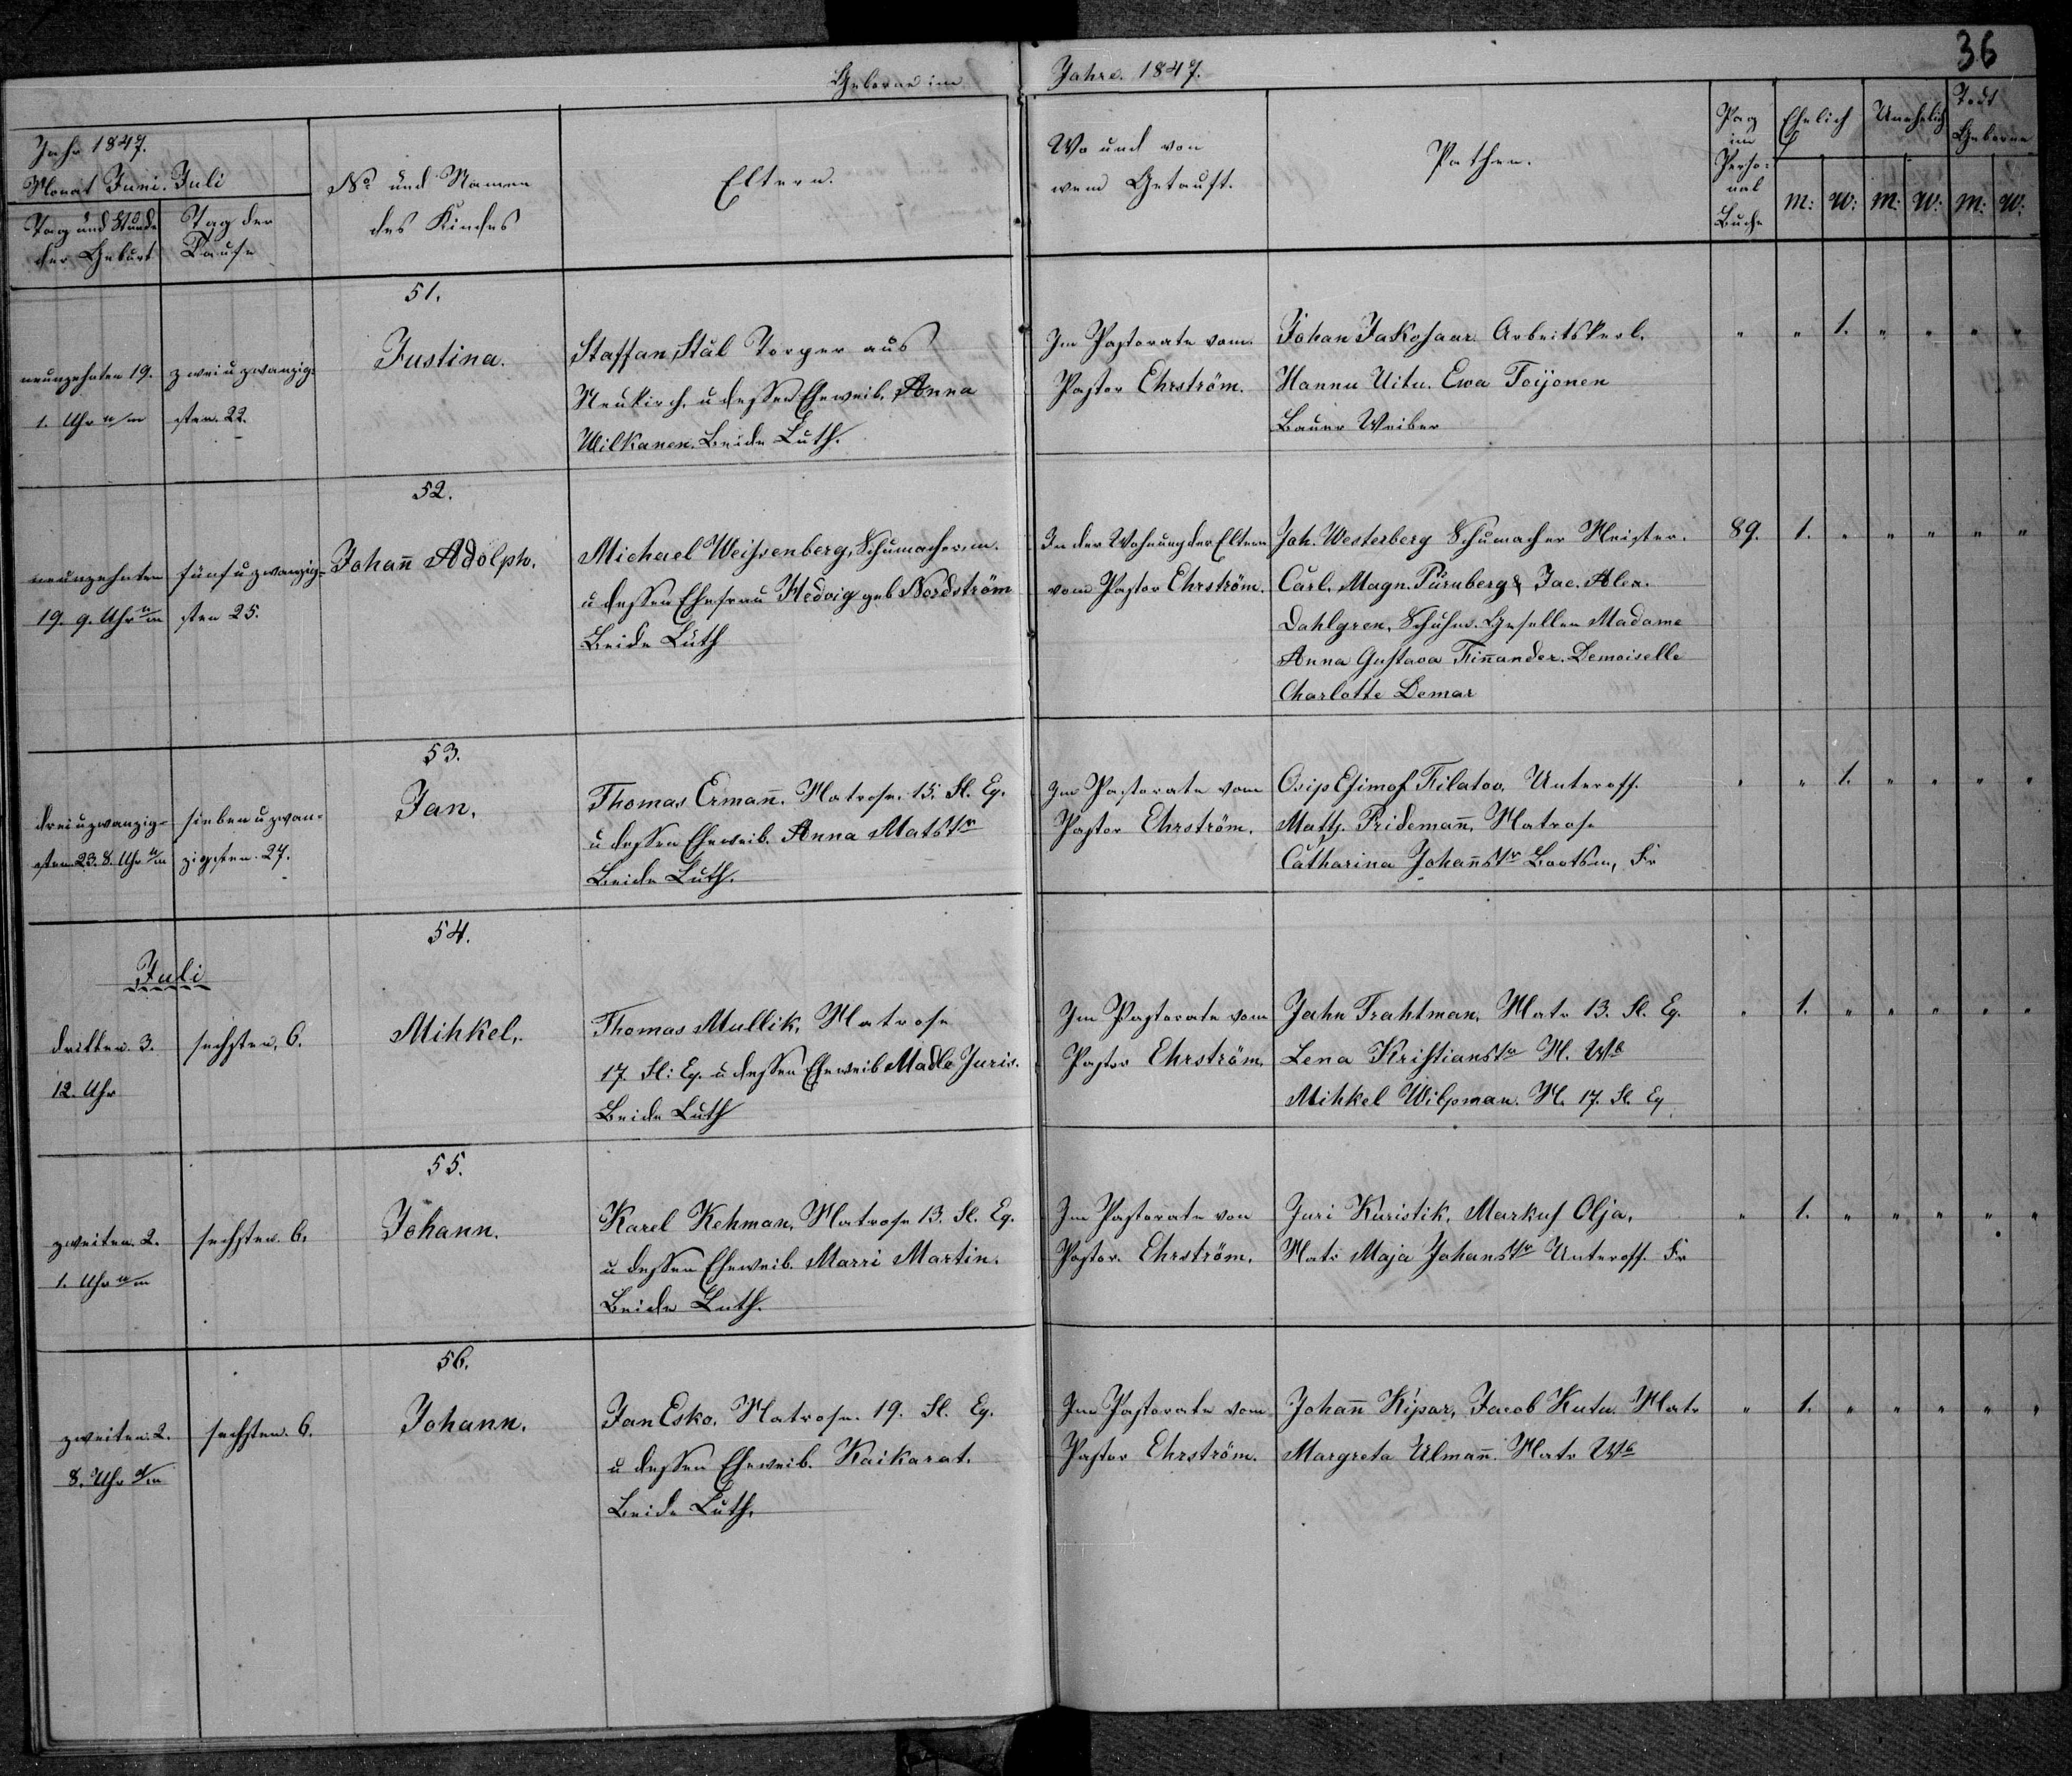 36
Geborne im Jahre. 1847.
Jahr 1847.
Monat Juni. Juli
Tag und Stunde
der Geburt
Tag der
Taufe
No und Namen
des Kindes
Eltern.
Wo und von
wem Getauft.
Pathen.
Pag
im
Perso-
nal
Buche
Ehelich
Unehelich
Todt
Geborne
m: w: m: w: m: w:
51.
neunzehnten 19.
1. Uhr n/m
zweiu zwanzig-
sten. 22.
Justina.
Staffan Stål Torper aus
Neukirch, u dessen Eheweib. Anna
Wilkanen. Beide Luth.
Im Pastorate vom
Pastor Ehrström.
Johan Jakosaar Arbeitskerl.
Hannu Uitu. Ewa Toijonen
Bauer Weiber
" " 1. " " " "
52.
neunzehnten
19. 9. Uhr n/m
fünf u zwanzig-
sten 25.
Johan̄ Adolph.
Michael Weissenberg, Schumacherm.
u dessen Ehefrau Hedvig geb Nordström
Beide Luth
In der Wohnung der Eltern
vom Pastor Ehrström.
Joh. Westerberg Schumacher Meister.
Carl. Magn. Pürnberg & Jac. Alex.
Dahlgren, Schuhm. Gesellen Madame
Anna Gustava Fin̄ander. Demoiselle
Charlotte Demar
89. 1. " " " " "
53.
dreiuzwanzig-
sten. 23. 8. Uhr n/m
siebenuzwan-
zigsten. 27.
Jan.
Thomas Erman̄. Matrose. 15. Fl. Eq.
u dessen Eheweib. Anna Matstr
Beide Luth.
Im Pastorate vom
Pastor Ehrström.
Osip Efimof Filatov. Unteroff.
Math. Fridemān, Matrose
Catharina Johan̄str Bootsm, Fr
" " 1. " " " "
54.
Juli
dritten. 3.
12. Uhr
sechsten, 6.
Mihkel.
Thomas Mullik, Matrose
17. Fl: Eq. u dessen Eheweib Madle Juris.
Beide Luth
Im Pastorate vom
Pastor Ehrström.
Jahn Trahtman, Matr 13. Fl. Eq.
Lena Kristianstr M. Wb
Mihkel Wilpman. M. 17. Fl. Eq
" 1. " " " " "
55.
zweiten. 2.
1. Uhr n/m
sechsten. 6.
Johann.
Karel Kehman, Matrose 13. Fl. Eq.
u dessen Eheweib. Marri Martin.
Beide Luth.
Im Pastorate von
Pastor. Ehrström.
Juri Kuristik, Markus Olja,
Matr Maja Johanstr Unteroff. Fr
" 1. " " " " "
56.
zweiten. 2.
8. Uhr v/m
sechsten. 6.
Johann.
Jan Esko. Matrose. 19. Fl. Eq.
u dessen Eheweib. Kai Karat.
Beide Luth.
Im Pastorate vom
Pastor Ehrström.
Johan̄ Kipar, Jacob Kutu. Matr
Margreta Ulman̄. Matr Wb
" 1. " " " " "